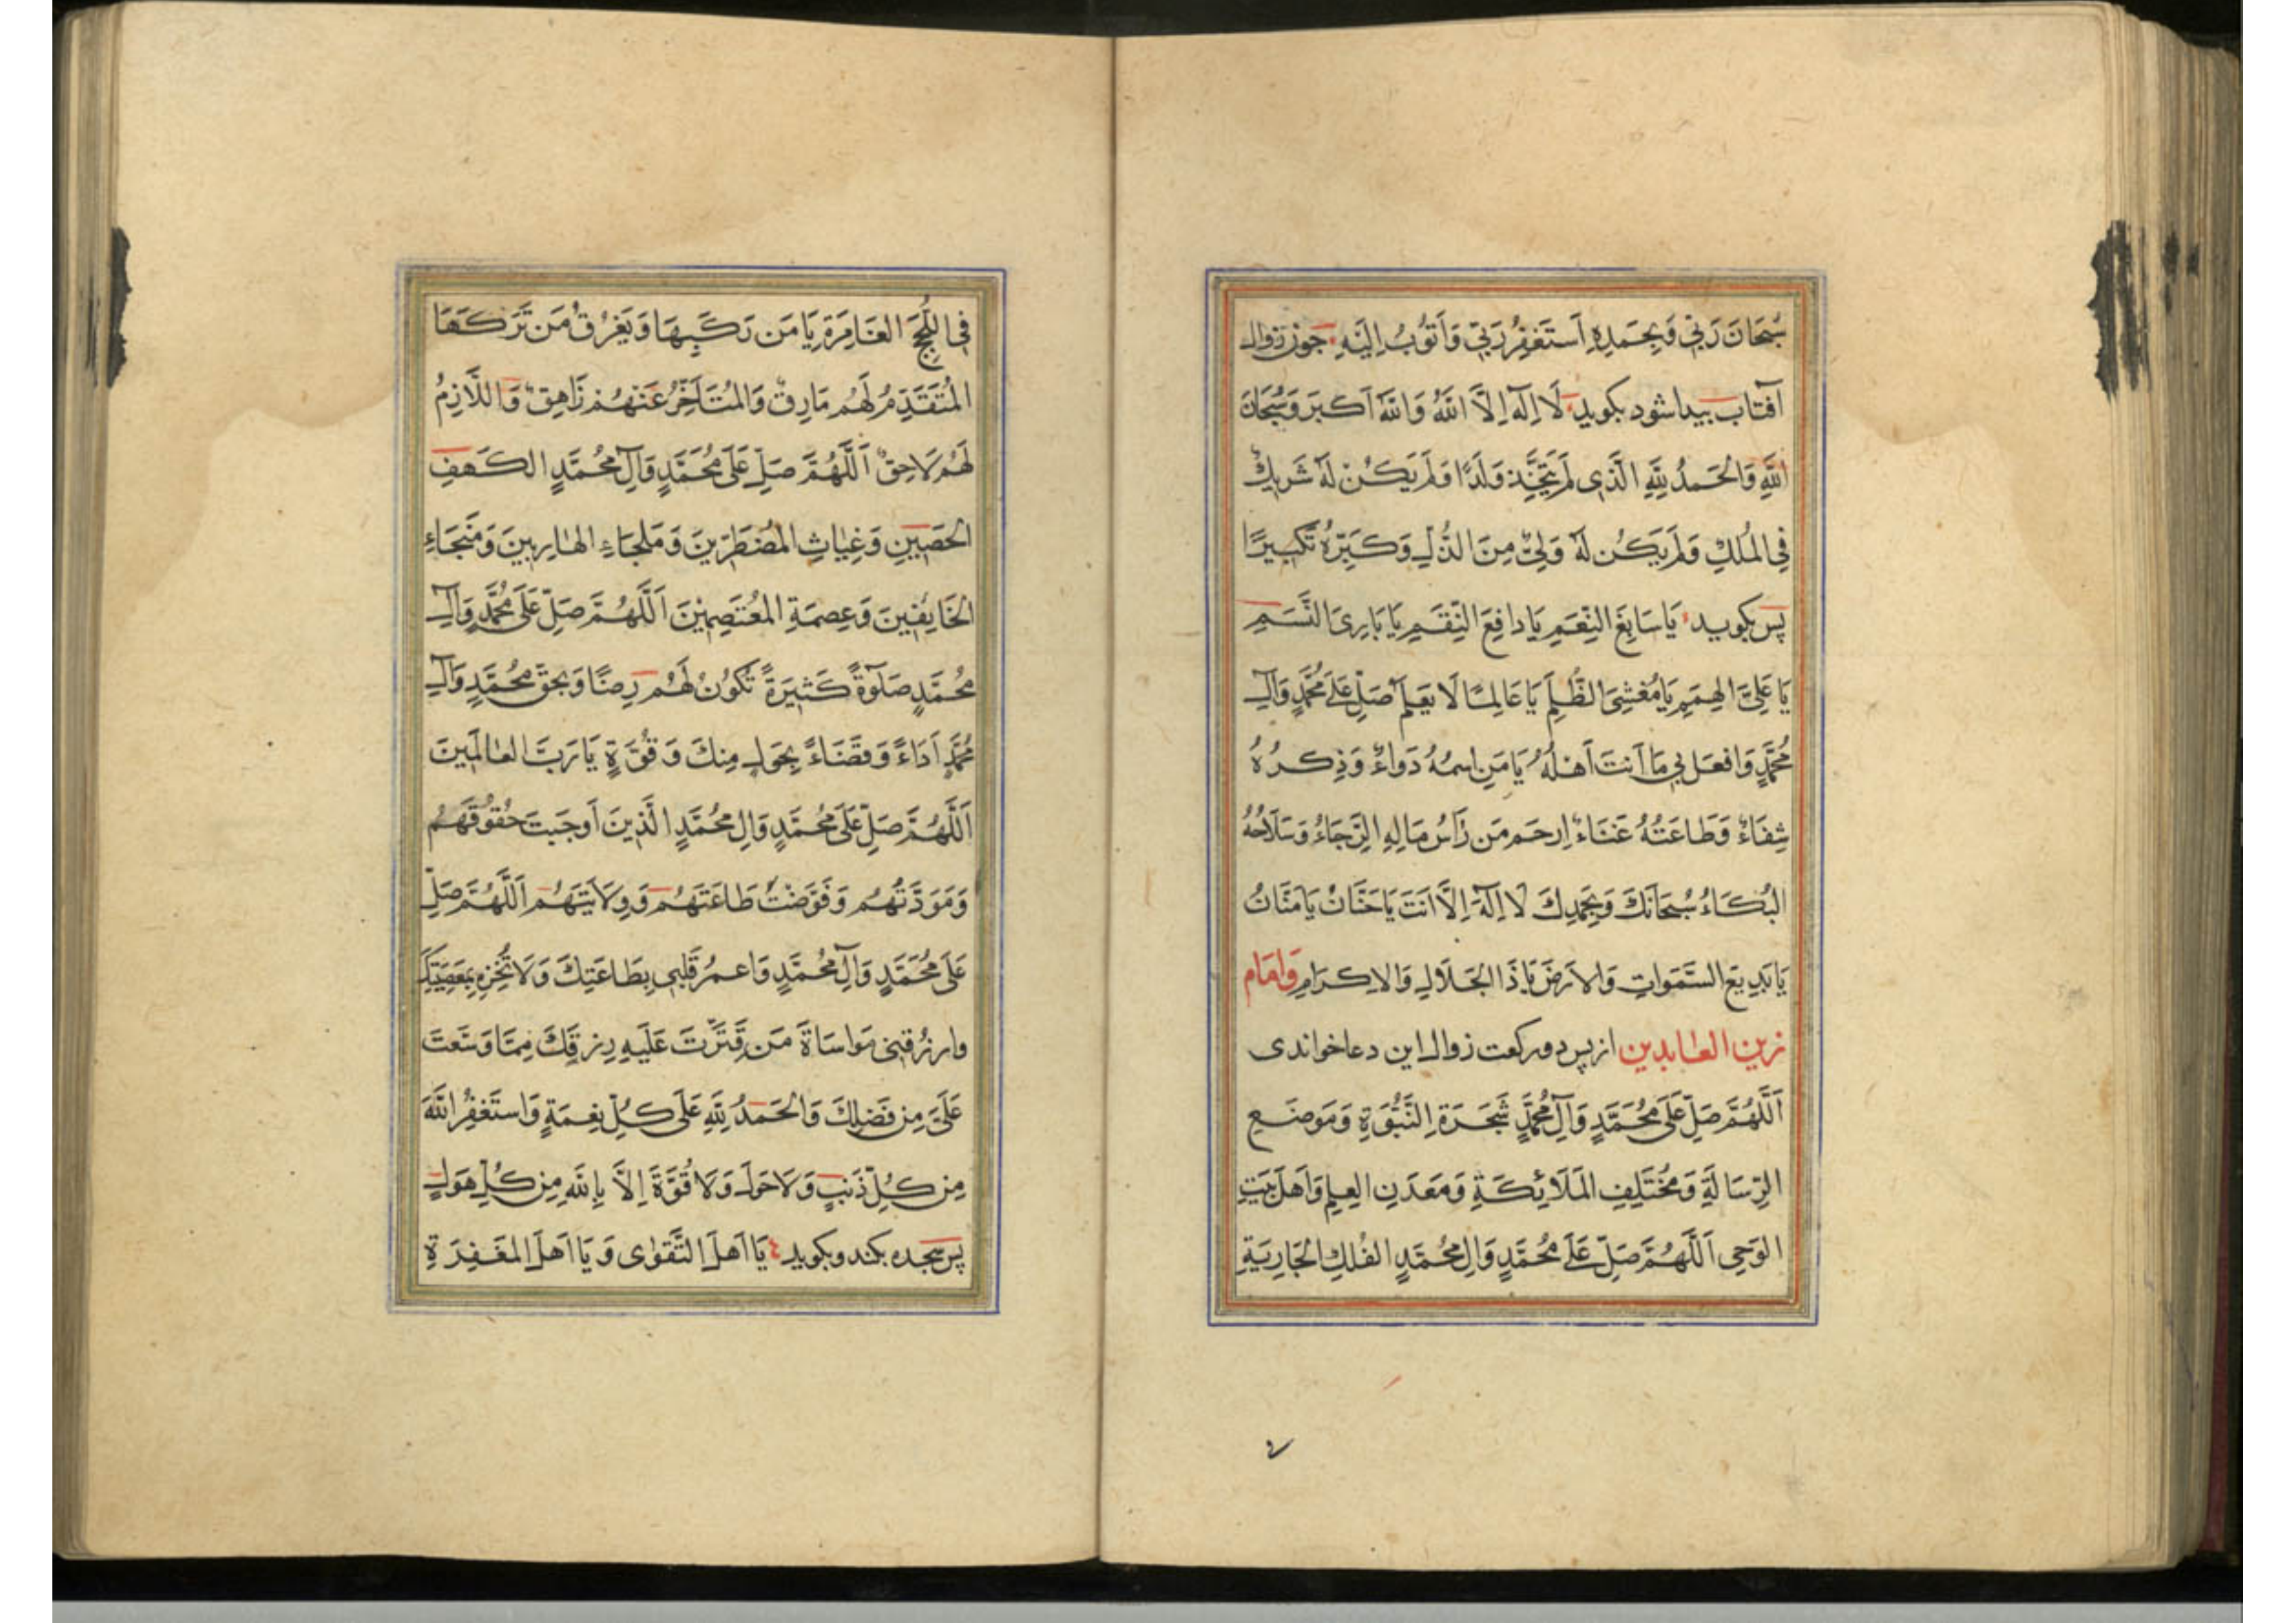 سُبْحَانَ رَبّي وَبِحَمدِهِ اَستَغفِرُ رَبّي وَاَتُوبُ اِلَيْهِ چون زوال
آفتاب پیدا شود بکوید لَا اِلٰهَ اِلَّا اللهُ وَاللهُ اَكبَر وَسُبحَانَ
اللهِ وَالحَمدُ لِلّٰهِ الَّذِي لَم يَتَّخِذ وَلَدًا وَلَم يَكُنْ لَهُ شَرِيكٌ
فِي المُلكِ وَلَم يَكُن لَهُ وَلِيٌّ مِنَ الذُّلِّ وَكَبِّرهُ تَكبِيرًا
پس بکوید يَا سَابِغَ النِّعَمِ يَا دافِعَ النِّقَمِ يَا بَارِئَ النَّسَمِ
يَا عَلِيَّ الهِمَمِ يَا مُغشِيَ الظُّلَمِ يَا عَالِمًا لَا يعَلَم صَلِّ عَلى مُحَمَّدٍ وَآلِ
مُحَمَّدٍ وَافعَل بي مَا اَنتَ اَهْلُهُ يَا مَنِ اسمُهُ دَواءٌ وَذِكرُهُ
شِفَاءٌ وَطَاعَتُهُ غَنَاءٌ اِرحَم مَن رَاسُ مَالِهِ الرَّجَاءُ وَسَلَاحُهُ
البُكَاءُ سُبحَانَكَ وَبِحَمدِكَ لَا اِلٰهَ اِلَّا اَنتَ يَا حَنَّانُ يَا مَنَّانُ
يَا بَدِيعَ السَّمَوَاتِ وَالاَرضِ يَا ذَا الجَلَالِ وَالاِكرَامِ وَامَام
زين العابدين از پس دو رکعت زوال این دعا خواندی
اَللّٰهُمَّ صَلِّ عَلَى مُحَمَّدٍ وَآلِ مُحَمَّدٍ شَجَرَةِ النُّبُوَّةِ وَمَوضَعِ
الرِّسَالَةِ وَمُختَلِفِ المَلَائِكَةِ وَمَعدَنِ العِلمِ وَاَهلِ بَيتِ
الوَحيِ اَللّٰهُمَّ صَلِّ عَلَى مُحَمَّدٍ وَالِ مُحَمَّدٍ الفُلكِ الجَارِيَةِ
فِي اللُّجَجِ الغَامِرَةِ يَا مَن رَكَبِهَا وَيَغرُقُ مَن تَرَكَهَا
المُتَقَدِّمُ لَهُم مَارِقٌ وَالمُتَاَخِّرُ عَنهُم زَاهِقٌ وَاللَّازِمُ
لَهُم لَاحِقٌ اَللّٰهُمَّ صَلِّ عَلَى مُحَمَّدٍ وَآلِ مُحَمَّدٍ الكَهفِ
الحَصِينِ وَغِيَاثِ المُضطَرِّينَ وَمَلجَاءِ الهَارِبِينَ وَمَنجَاءِ
الخَايِفِينَ وَعِصمَةِ المُعتَصِمِينَ اَللّٰهُمَّ صَلِّ عَلَى مُحَمَّدٍ وَآلِ
مُحَمَّدٍ صَلٰوةً كَثِيرَةً تَكُونُ لَهُم رِضًا وَبحَقِّ مُحَمَّدٍ وَآلِ
مُحَمَّدٍ اَدَاءً وَقَضَاءً بِحَولٍ مِنكَ وَقُوَّةٍ يَا رَبَّ العَالَمِينَ
اَللّٰهُمَّ صَلِّ عَلَى مُحَمَّدٍ وَالِ مُحَمَّدٍ الَّذِينَ اَوجَبتَ حُقُوقَهُم
وَمَوَدَّتَهُم وَفَوَّضتَ طَاعَتَهُم وَوِلَايَتَهُم اَللّٰهُمَّ صَلِّ
عَلَى مُحَمَّدٍ وَآلِ مُحَمَّدٍ وَاعمُر قَلبي بِطَاعَتِكَ وَلَا تُخزِهِ بِمَعصِيَتِكَ
وارزُقني مَواسَاةَ مَن قَتَّرتَ عَلَيهِ رِزقِكَ مِمَّا وَسَّعتَ
عَلَيَّ مِن فَضلِكَ وَالحَمدُ لِلّٰهِ عَلَى كُلِّ نِعمَةٍ وَاستَغفِرُ اللهَ
مِن كُلِّ ذَنبٍ وَلَا حَولَ وَلَا قُوَّةَ اِلَّا بِاللهِ مِن كُلِّ هَولٍ
پس سجده بکند و بکوید يَا اَهلَ التَّقوٰى وَيَا اَهلَ المَغفِرَةِ